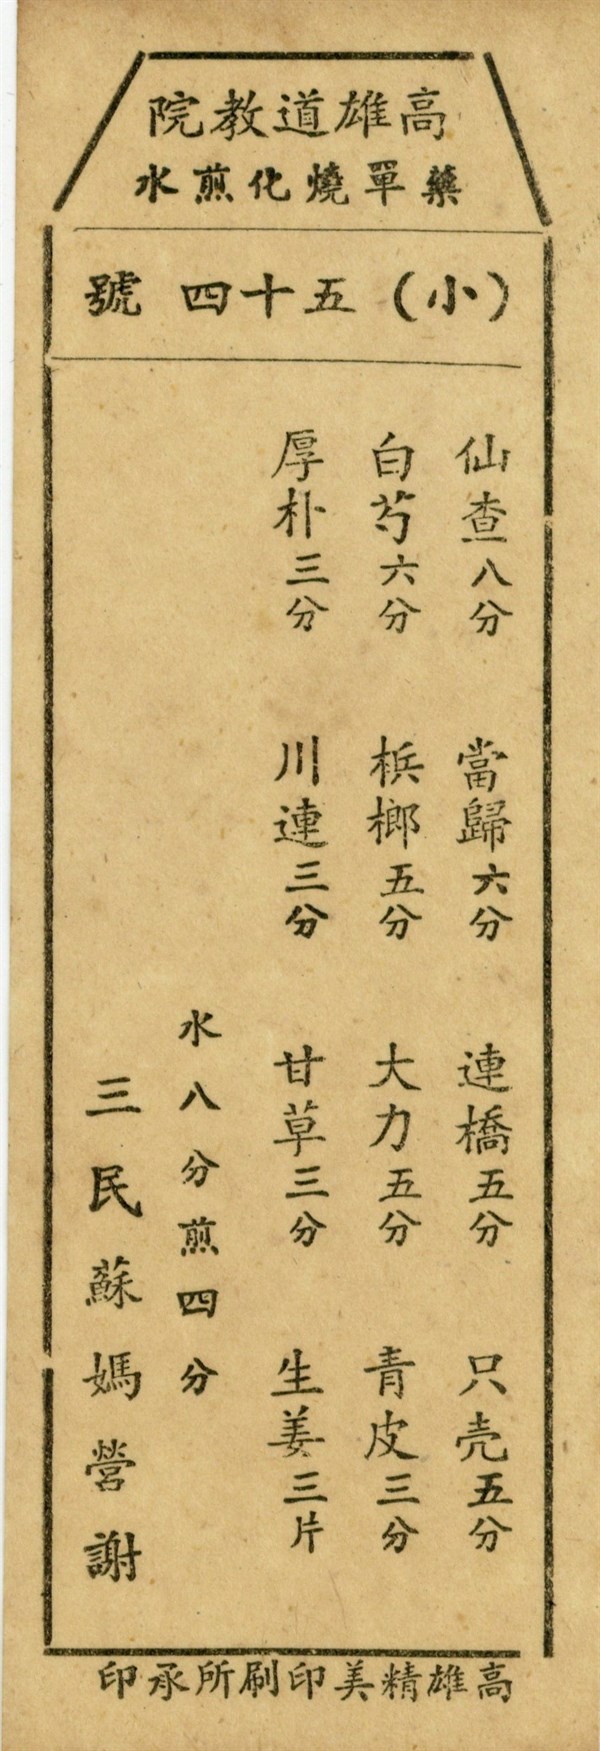 高雄道教院
藥單燒化煎水
(小)五十四 號
仙查八分 當歸六分 連橋五分 只壳五分
白芍六分 梹榔五分 大力五分 青皮三分
厚朴三分 川連三分 甘草三分 生姜三片
水八分煎四分
三民蘇媽營謝
高雄精美印刷所承印